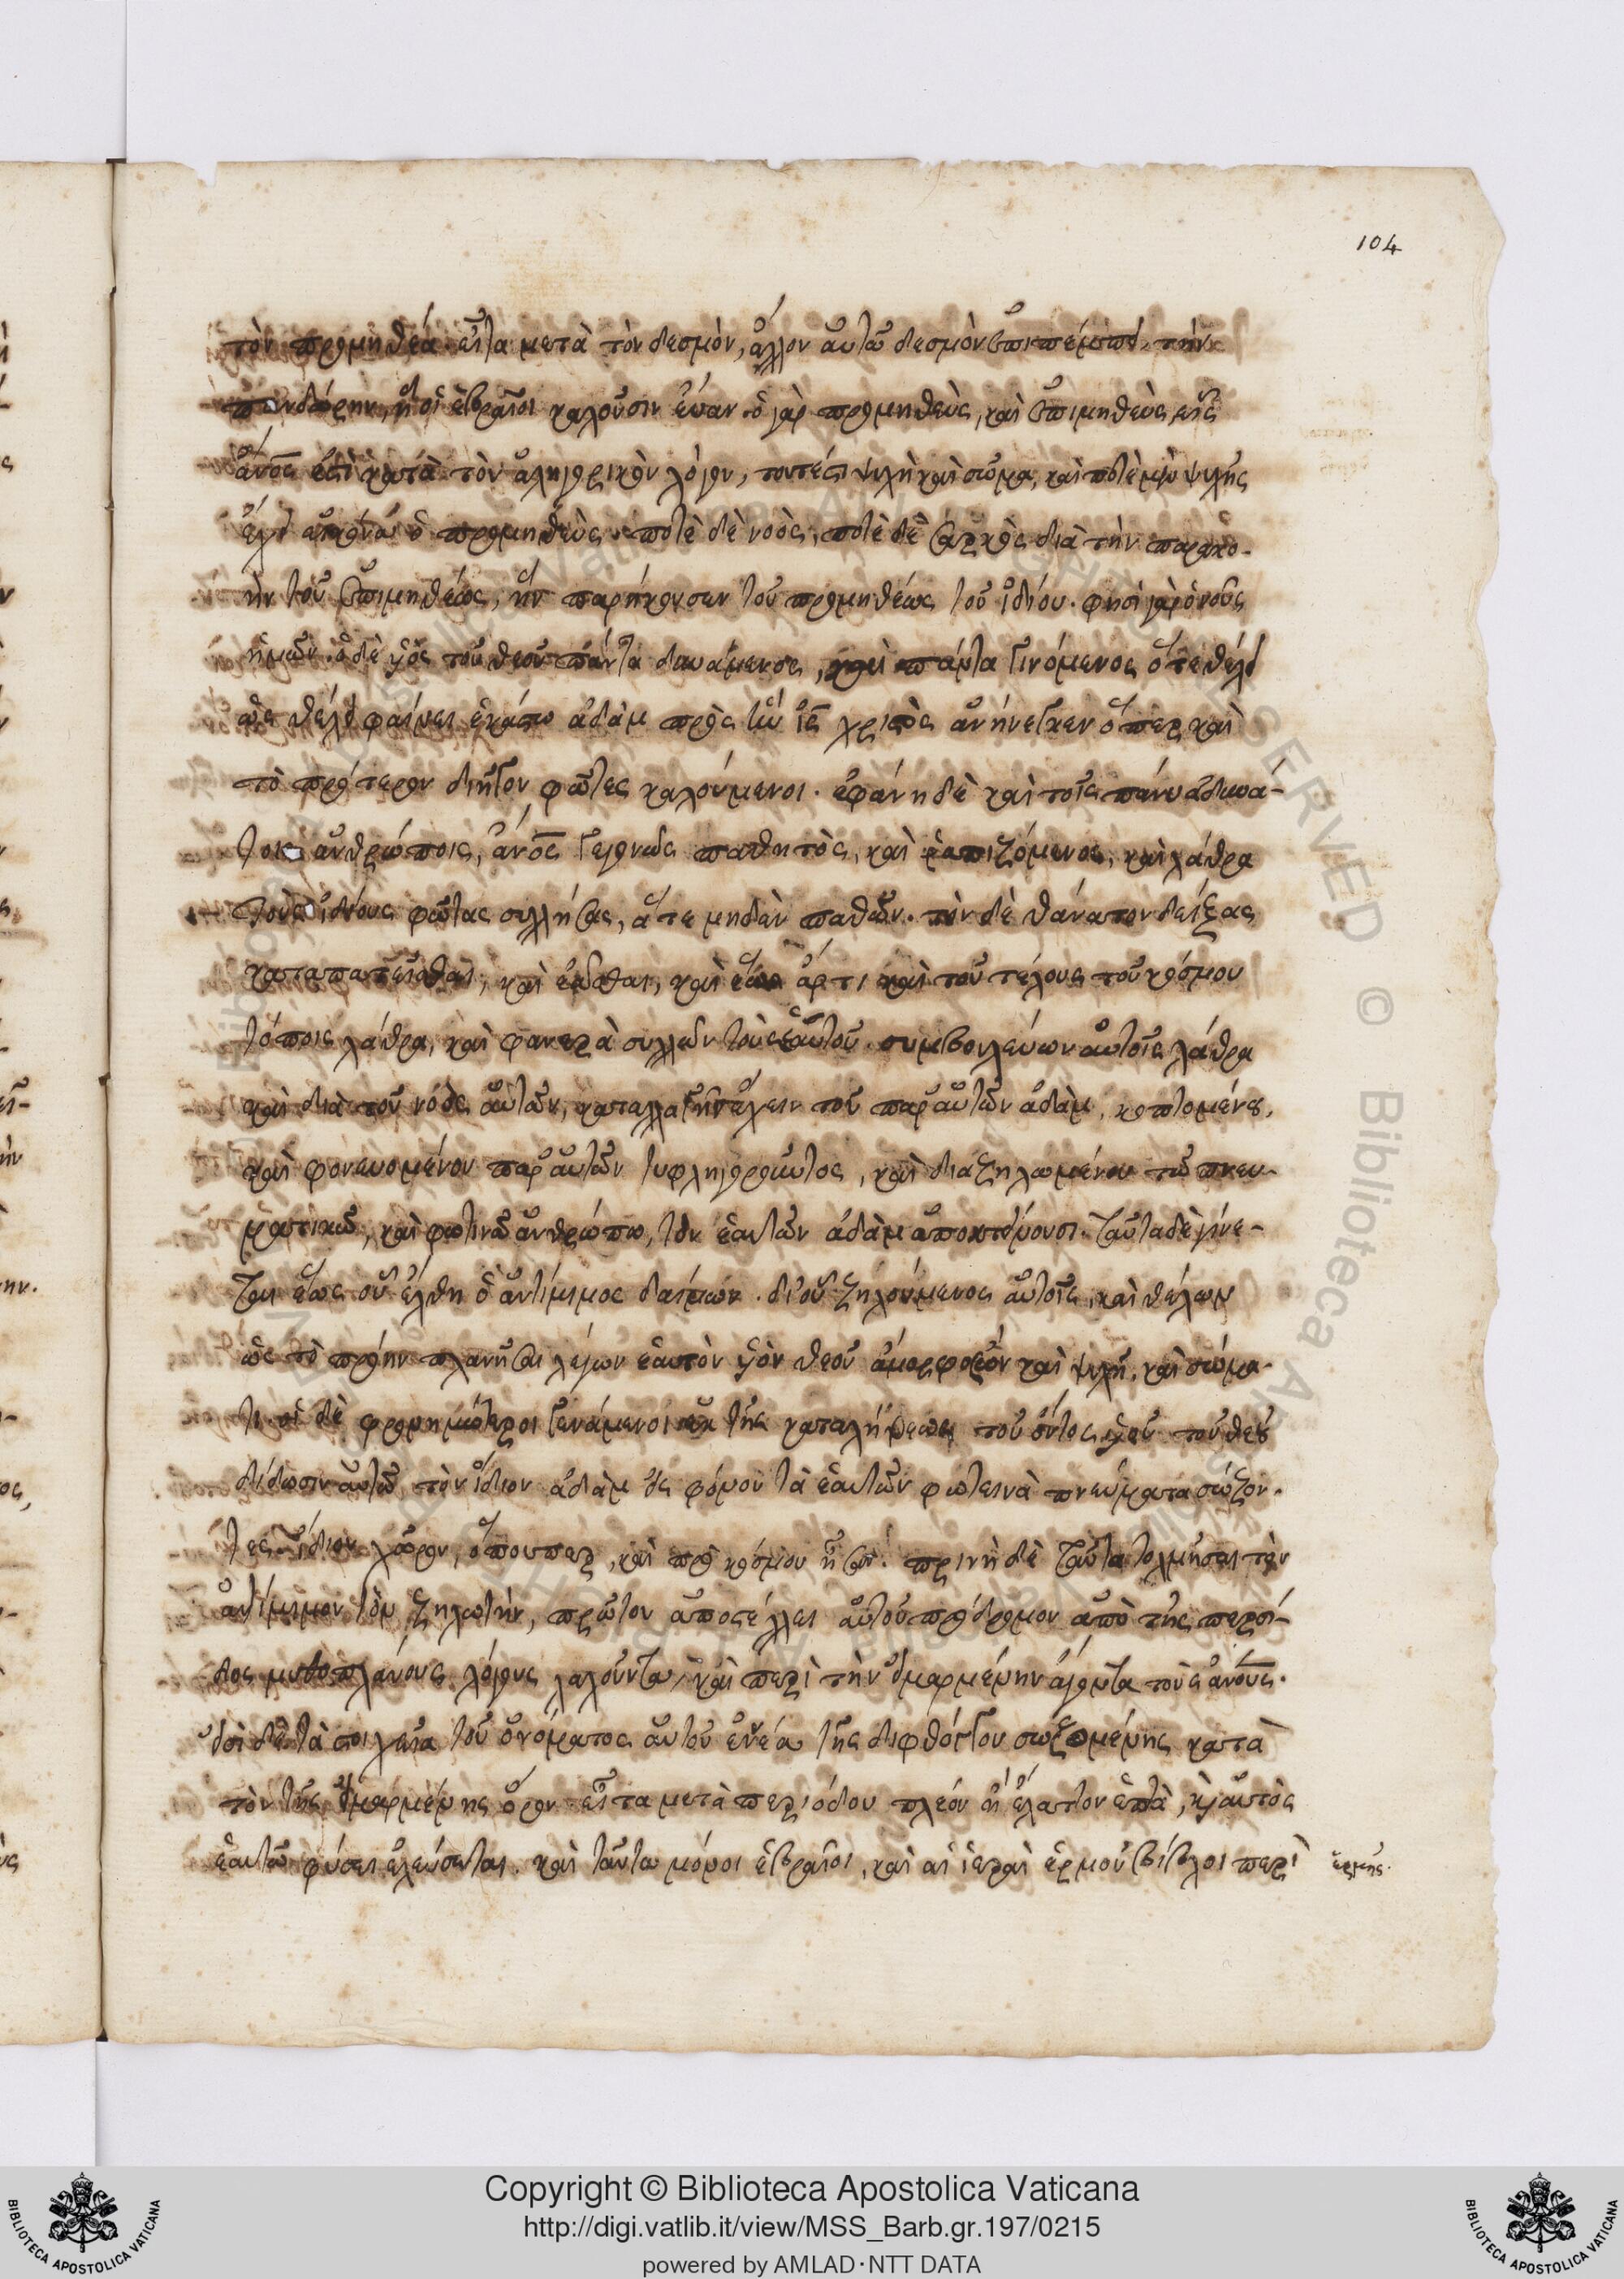 104
τὸν προμηθέα. εἶτα μετὰ τὸν δεσμὸν, ἄλλον αὐτῶ δεσμὸν ἐπιπέμπει, τὴν
πανδώρην, ἣ οἱ ἑβραῖοι καλοῦσιν ἔυαν. ὁ γὰρ προμηθεὺς, καὶ ἐπιμηθεὺς, εἷς
ἄνος ἐστὶ κατὰ τὸν ἀλληγορικὸν λόγον, τουτέστι ψυχὴ καὶ σῶμα, καὶ ποτὲ μὲν ψυχῆς
ἔχει εἰκόνα ὁ προμηθεὺς. ποτὲ δὲ νοὸς, ποτὲ δὲ σαρκὸς διὰ τὴν παρακο-
ὴν τοῦ ἐπιμηθέως, ἣν παρήκουσεν τοῦ προμηθέως τοῦ ἰδίου. φησὶ γὰρ ὁ νοῦς
ἡμῶν. ὁ δὲ υἱὸς τοῦ θεοῦ πάντα δυνάμενος, καὶ πάντα γινόμενος ὅτε θέλει
ὡς θέλει φαίνει ἑκάστω ἀδὰμ πρὸς ἦν ἰς χριστὸς ἀνήνεγκεν ὅπερ καὶ
τὸ πρότερον διῆγον φῶτες καλούμενοι. ἐφάνη δὲ καὶ τοῖς πάνυ ἀδυνά-
τοις ἀνθρώποις, ἄνος γεγονὼς παθητὸς, καὶ ῥαπιζόμενος, καὶ λάθρα
τοὺς ἰδίους φῶτας συλλήσας, ἅτε μηδὲν παθὼν. τὸν δὲ θάνατον δείξας
καταπατεῖσθαι, καὶ ἐῶσθαι, καὶ ἕως ἄρτι καὶ τοῦ τέλους τοῦ κόσμου
τόποις λάθρα, καὶ φανερὰ συλλῶν τοὺς ἑαυτοῦ. συμβουλεύων αὐτοῖς λάθρα
καὶ διὰ τοῦ νόὸς αὐτῶν, καταλλαγὴν ἔχειν τοῦ παρ' αὐτῶν ἀδὰμ, κοπτομένου,
καὶ φονευομένου παρ' αὐτῶν τυφληγοροῦντος, καὶ διαζηλωμένου τῶ πνευ-
ματικῶ, καὶ φωτινῶ ἀνθρώπω, τὸν ἑαυτῶν ἀδὰμ ἀποκτείνουσι. ταῦτα δὲ γίνε-
ται ἕως οὗ ἔλθη ὁ ἀντίμιμος δαίμων. δι' οὗ ζηλούμενος αὐτοῖς, καὶ θέλων
ὡς τὸ πρώην πλανῆσαι λέγων ἑαυτὸν υἱὸν θεοῦ ἄμορφος ὢν καὶ ψυχῆ, καὶ σώμα-
τι. οἱ δὲ φρονημώτεροι γενάμενοι ἐκ τῆς καταλήψεως τοῦ ὄντος υἱοῦ τοῦ θεοῦ
δίδωσιν αὐτῶ τὸν ἴδιον ἀδὰμ εἰς φόνον τὰ ἑαυτῶν φωτεινὰ πνεύματα σώζον-
τες ἴδιον χῶρον, ὅπουπερ, καὶ πρὸ κόσμου ἦσαν. πρινὴ δὲ ταῦτα τολμῆσαι τὸν
ἀντίμιμον τὸν ζηλωτὴν, πρῶτον ἀποστέλλει αὐτοῦ πρόδρομον ἀπὸ τῆς περσί-
δος μυθοπλάνους λόγους λαλοῦντα, καὶ περὶ τὴν εἱμαρμένην ἄγοντα τοὺς ἀνους.
εἰσὶ δὲ τὰ στοιχεῖα τοῦ ὀνόματος αὐτοῦ ἐννέα τῆς διφθόγγου σωζομένης κατὰ
τὸν τῆς εἱμαρμένης ὅρον εἶτα μετὰ περιόδου πλέον ἢ ἔλαττον ἑπτὰ, καὶ αὐτὸς
ἑαυτῶ φύσει ἐλεύσεται. καὶ ταῦτα μόνοι ἑβραῖοι, καὶ αἱ ἱεραὶ ἑρμοῦ βίβλοι περὶ
ἑρμῆς.
Copyright © Biblioteca Apostolica Vaticana
http://digi.vatlib.it/view/MSS_Barb.gr.197/0215
powered by AMLAD·NTT DATA
BIBLIOTECA APOSTOLICA VATICANA
BIBLIOTECA APOSTOLICA VATICANA